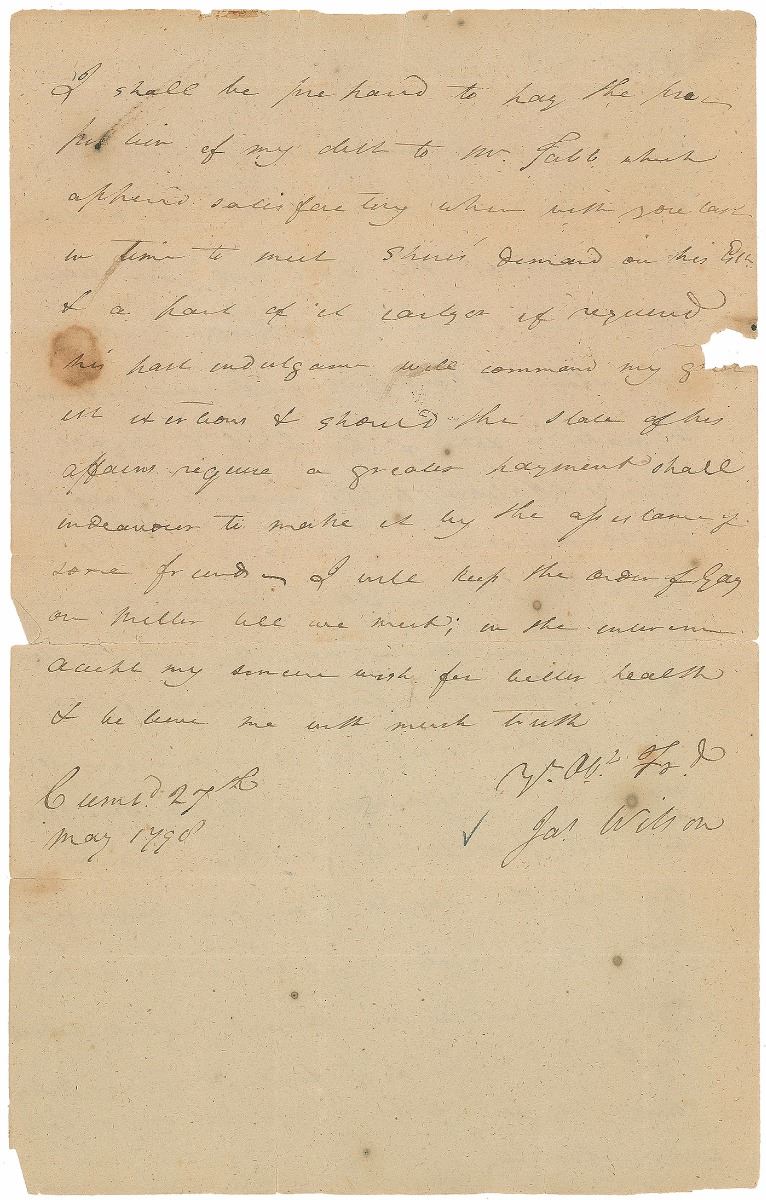 I shall be prepared to pay the pro-
portion of my debt to Mr. Tabb which
appeard satisfactory when with you last
in time to meet demand on his
& a part of it earlyer if required
his past indulgance will command my great
est exertions & should the state of his
affairs require a greater payment shall
indeavour to make it by the assistance of
some friends I will keep the order of Gay
on Miller till we meet; in the interim
accept my sincere wish for better health
& believe me with much truth
Yr. Obt. Frd
Cumd. 27th
May 1798
Jas. Wilson